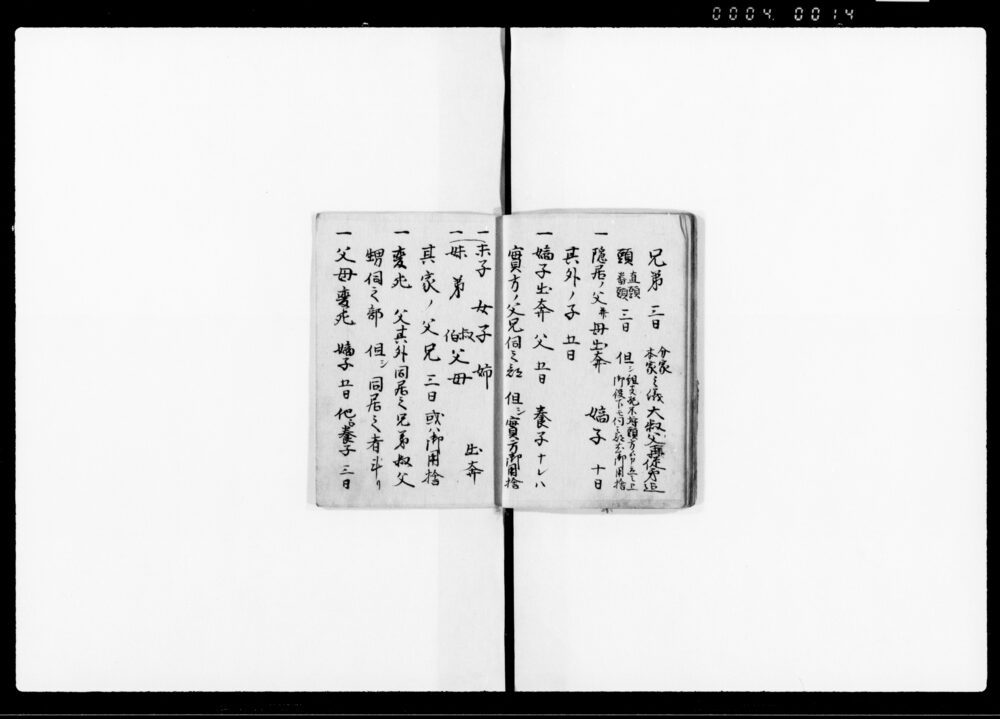 0004 0014
兄弟 三日 分家本家之儀大叔父再従弟迄
頭 直頭番頭 三日 但シ組支配
御用捨
一 隠居ノ父并母出奔 嫡子 十日
其外ノ子 五日
一 嫡子出奔 父 五日 養子ナレハ
實方ノ父兄伺之部 但シ實方御用捨
一 末子 女子 姉
一 妹 弟 叔伯父母 出奔
其家ノ父兄 三日 或ハ御用捨
一 変死 父其外同居之兄弟叔父
甥伺之部 但シ同居之者斗リ
一 父母変死 嫡子 五日 他ヘ養子 三日